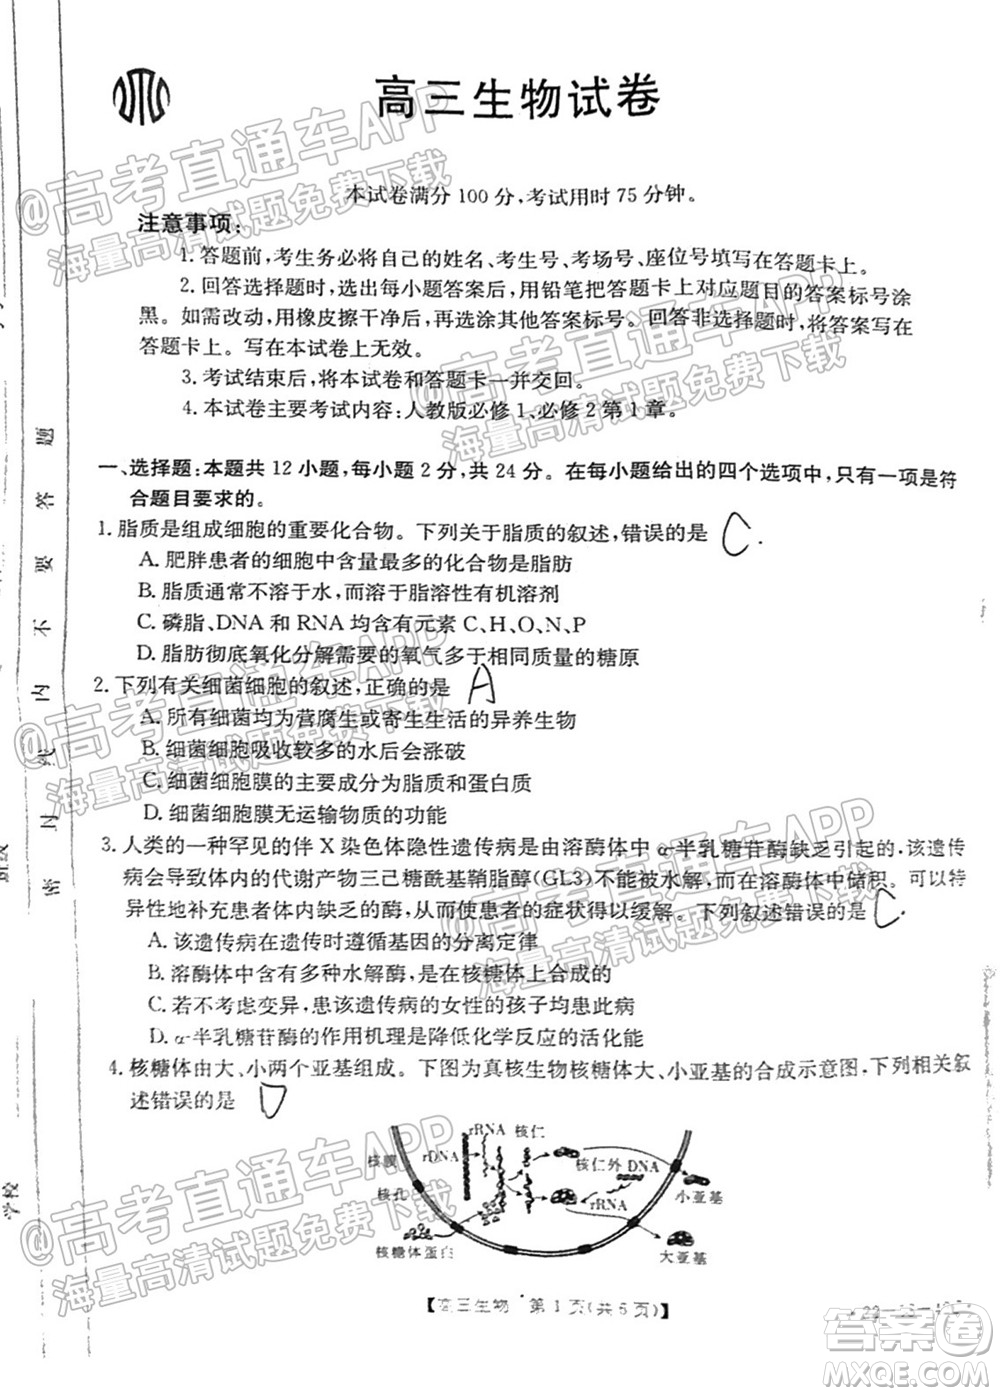 高三生物试卷
本试卷满分100分,考试用时75分钟。
注意事项:
1.答题前,考生务必将自己的姓名、考生号、考场号、座位号填写在答题卡上。
2.回答选择题时,选出每小题答案后,用铅笔把答题卡上对应题目的答案标号涂
黑。如需改动,用橡皮擦干净后,再选涂其他答案标号。回答非选择题时,将答案写在
答题卡上。写在本试卷上无效。
3.考试结束后,将本试卷和答题卡一并交回。
4.本试卷主要考试内容:人教版必修1、必修2第1章。
一、选择题:本题共12小题,每小题2分,共24分。在每小题给出的四个选项中,只有一项是符
合题目要求的。
1.脂质是组成细胞的重要化合物。下列关于脂质的叙述,错误的是 C.
A.肥胖患者的细胞中含量最多的化合物是脂肪
B.脂质通常不溶于水,而溶于脂溶性有机溶剂
C.磷脂、DNA和RNA均含有元素C、H、O、N、P
D.脂肪彻底氧化分解需要的氧气多于相同质量的糖原
2.下列有关细菌细胞的叙述,正确的是 A
A.所有细菌均为营腐生或寄生生活的异养生物
B.细菌细胞吸收较多的水后会涨破
C.细菌细胞膜的主要成分为脂质和蛋白质
D.细菌细胞膜无运输物质的功能
3.人类的一种罕见的伴X染色体隐性遗传病是由溶酶体中α-半乳糖苷酶缺乏引起的,该遗传
病会导致体内的代谢产物三己糖酰基鞘脂醇(GL3)不能被水解,而在溶酶体中储积。可以特
异性地补充患者体内缺乏的酶,使患者的症状得以缓解。下列叙述错误的是 C.
A.该遗传病在遗传时遵循基因的分离定律
B.溶酶体中含有多种水解酶,是在核糖体上合成的
C.若不考虑变异,患该遗传病的女性的孩子均患此病
D.α-半乳糖苷酶的作用机理是降低化学反应的活化能
4.核糖体由大、小两个亚基组成。下图为真核生物核糖体大、小亚基的合成示意图,下列相关叙
述错误的是 D
rRNA 核仁
核膜 rDNA
核仁外DNA
核孔
小亚基
rRNA
核糖体蛋白
大亚基
【高三生物 第1页(共6页)】
密 封 线 内 不 要 答 题
学校
班级
@高考直通车APP
海量高清试题免费下载
@高考直通车APP
海量高清试题免费下载
@高考直通车APP
海量高清试题免费下载
@高考直通车APP
海量高清试题免费下载
@高考直通车APP
海量高清试题免费下载
答案圈
MXQE.COM